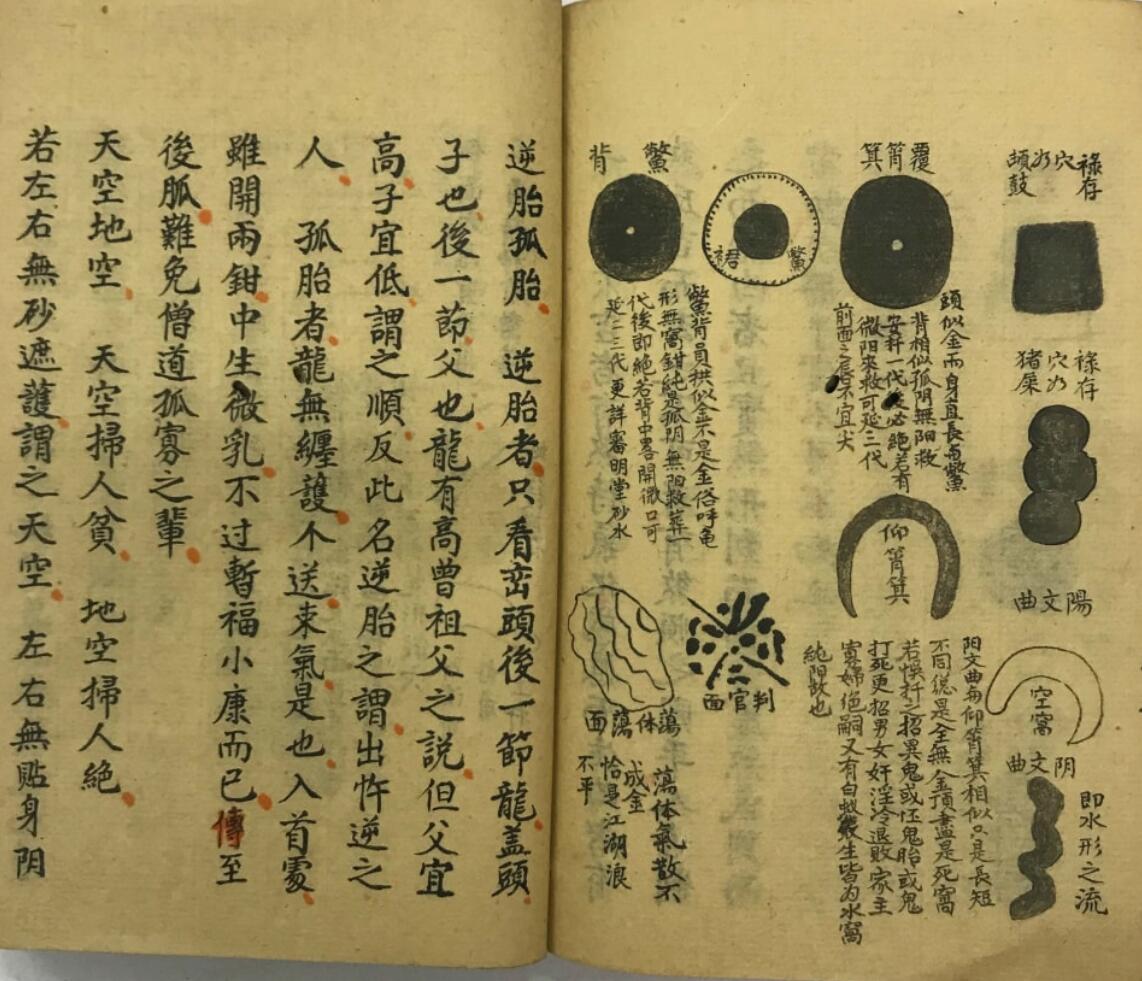 祿存
穴如
頡鼓
祿存
穴如
猪屎
陽文曲
空窩
阴文曲
即水形之流
覆筲箕
頭似金而身直長与鱉
背相似孤阴無阳救
安扦一代後必絶若有
微阳來救可延三代
前面之唇不宜尖
仰筲箕
阳文曲与仰筲箕相似只是長短
不同總是全無金頂盡是死窩
若悞扦之招異鬼或怌鬼胎或鬼
打死更招男女奸淫冷退敗家主
寡婦絶嗣又有白蚁叢生皆为水窩
純阴故也
鱉裙
鱉背
鱉背員拱似金不是金俗呼龟
形無窩鉗純是孤阴無阳救葬一
代後即絶若背中畧開微口可
延二三代更詳審明堂砂水
判官面
蕩体蕩面
蕩体氣散不
成金
恰是江湖浪
不平
逆胎孤胎 逆胎者只看峦頭後一節龍盖頭
子也後一節父也龍有高曾祖父之說但父宜
高子宜低謂之順反此名逆胎之謂出忤逆之
人 孤胎者龍無纏護不送束氣是也入首雖
雖開兩鉗中生微乳不过暫福小康而已傳至
後胍難免僧道孤寡之輩
天空地空 天空掃人貧 地空掃人絶
若左右無砂遮護謂之天空 左右無貼身阴